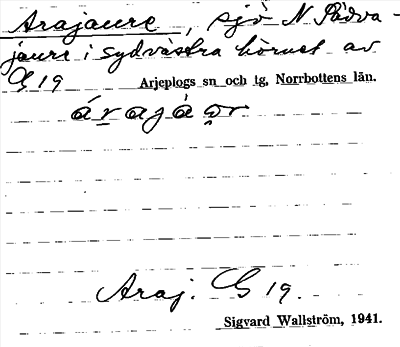 Arajaure, sjö N Pådva-
jaure i sydvästra hörnet av
G 19
Arjeplogs sn och tg, Norrbottens län.
árajàọr
Araj. G 19.
Sigvard Wallström, 1941.